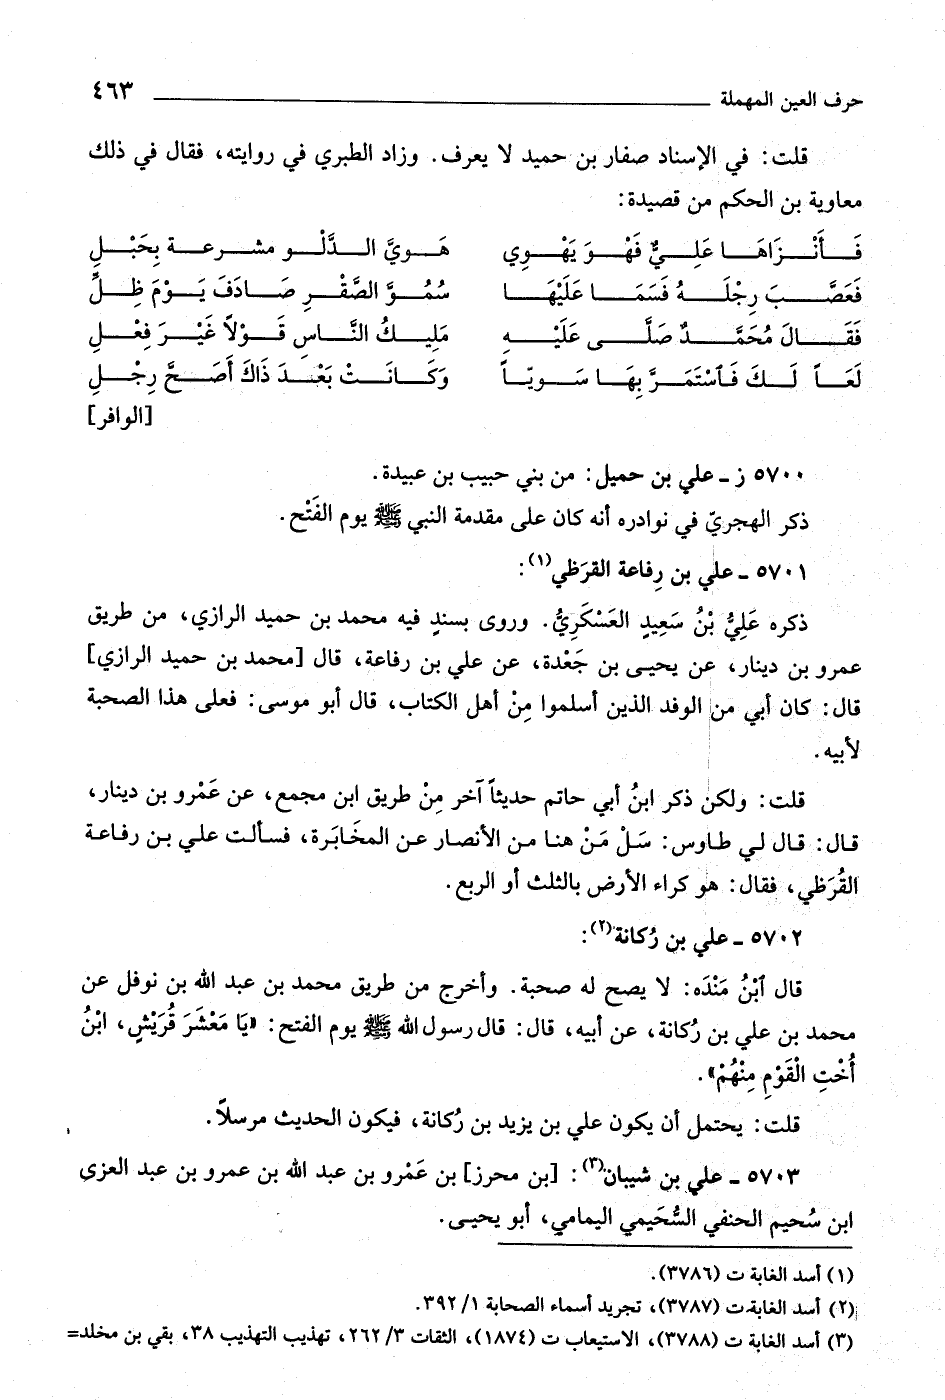 حرف العين المهملة ٤٦٣
قلت: في الإسناد صفار بن حميد لا يعرف. وزاد الطبري في روايته، فقال في ذلك
معاوية بن الحكم من قصيدة:
فَـأَنْـزَاهَـا عَلِـيٌّ فَهْـوَ يَهْـوِي هَـوِيَّ الـدَّلْـوِ مشـرعـة بِحَبْـلِ
فَعَصَّـبَ رِجْلَـهُ فَسَمَـا عَلَيْهَـا سُمُـوَّ الصَّقْـرِ صَـادَفَ يَـوْمَ ظِـلِّ
فَقَـالَ مُحَمَّـدٌ صَلَّـى عَلَيْـهِ مَلِيـكُ النَّـاسِ قَـوْلاً غَيْـرَ فِعْـلِ
لَعَـاً لَـكَ فَاسْتَمَـرَّ بِهَـا سَـوِيّـاً وَكَـانَـتْ بَعْـدَ ذَاكَ أَصَـحَّ رِجْـلِ
[الوافر]
٥٧٠٠ ز ـ علي بن حميل: من بني حبيب بن عبيدة.
ذكر الهجريّ في نوادره أنه كان على مقدمة النبي ﷺ يوم الفَتْح.
٥٧٠١ ـ علي بن رِفاعة القرَظي(١):
ذكره عَلِيُّ بْنُ سَعِيدٍ العَسْكَرِيُّ. وروى بسندٍ فيه محمد بن حميد الرازي، من طريق
عمرو بن دينار، عن يحيـى بن جَعْدة، عن علي بن رفاعة، قال [محمد بن حميد الرازي]
قال: كان أبي من الوفد الذين أسلموا مِنْ أهل الكتاب، قال أبو موسى: فعلى هذا الصحبة
لأبيه.
قلت: ولكن ذكر ابنُ أبي حاتم حديثاً آخر مِنْ طريق ابن مجمع، عن عَمْرو بن دينار،
قال: قال لي طاوس: سَلْ مَنْ هنا من الأنصار عن المخَابَرة، فسألت علي بن رفاعة
القُرَظي، فقال: هو كراء الأرض بالثلث أو الربع.
٥٧٠٢ ـ علي بن رُكانة(٢):
قال ٱبْنُ مَنْدَه: لا يصح له صحبة. وأخرج من طريق محمد بن عبد الله بن نوفل عن
محمد بن علي بن رُكانة، عن أبيه، قال: قال رسول الله ﷺ يوم الفتح: «يَا مَعْشَرَ قُرَيْشٍ، ابْنُ
أُخْتِ الْقَوْمِ مِنْهُمْ».
قلت: يحتمل أن يكون علي بن يزيد بن رُكانة، فيكون الحديث مرسلاً.
٥٧٠٣ ـ علي بن شيبان(٣): [بن محرز] بن عَمْرو بن عبد الله بن عمرو بن عبد العزى
ابن سُحيم الحنفي السُّحَيمي اليمامي، أبو يحيـى.
(١) أسد الغابة ت (٣٧٨٦).
(٢) أسد الغابة ت (٣٧٨٧)، تجريد أسماء الصحابة ١/ ٣٩٢.
(٣) أسد الغابة ت (٣٧٨٨)، الاستيعاب ت (١٨٧٤)، الثقات ٣/ ٢٦٢، تهذيب التهذيب ٣٨، بقي بن مخلد=